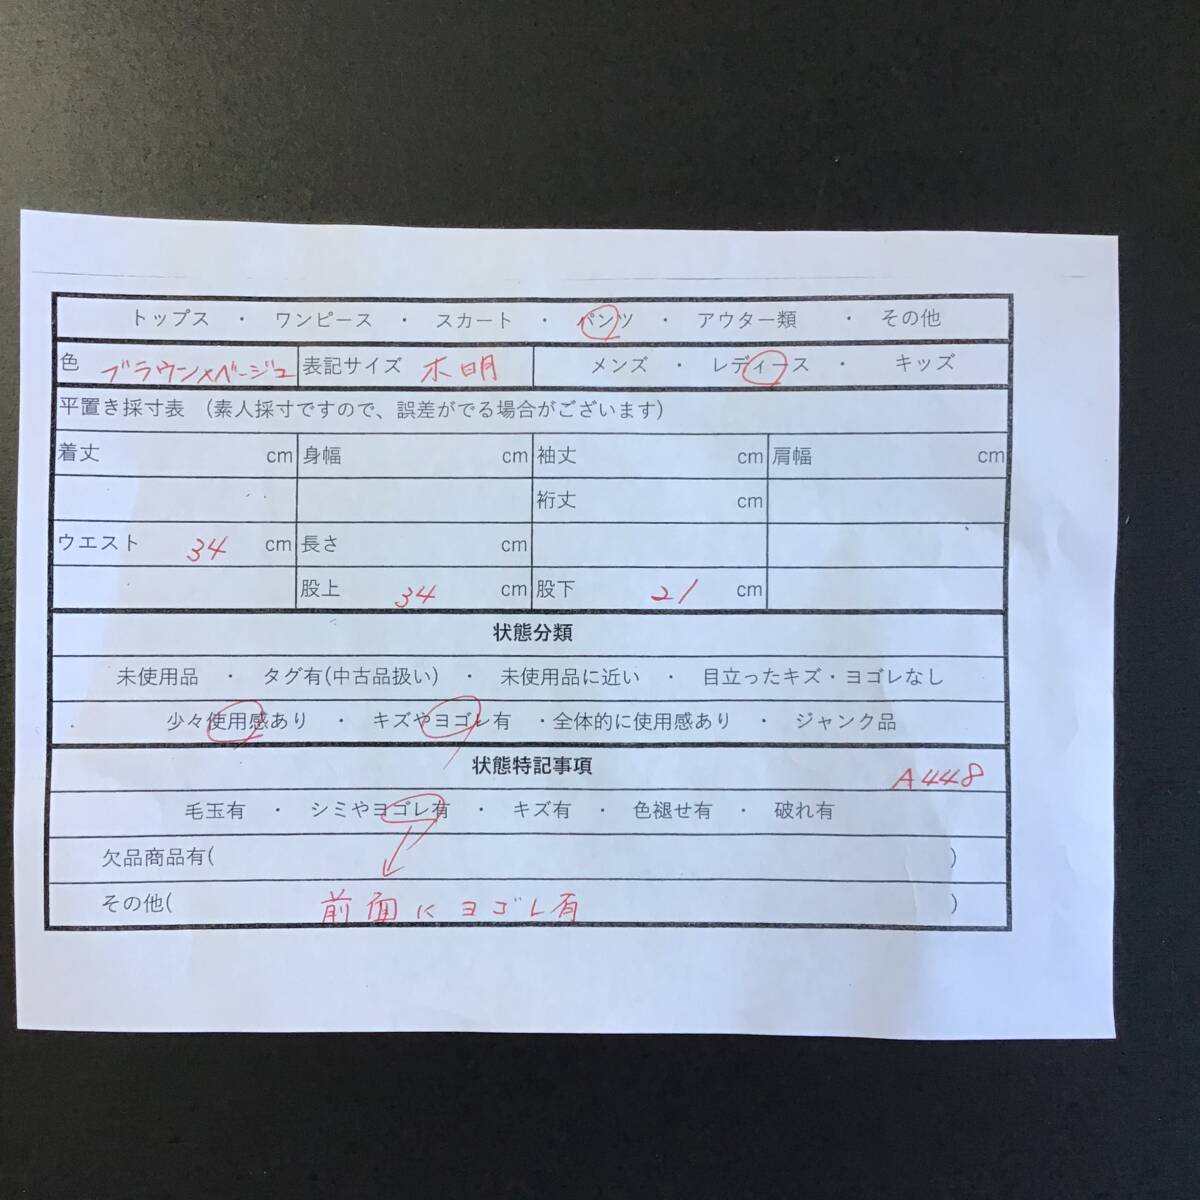 トップス ・ ワンピース ・ スカート ・ パンツ ・ アウター類 ・ その他
色 ブラウン×ベージュ 表記サイズ 不明 メンズ ・ レディース ・ キッズ
平置き採寸表 (素人採寸ですので、誤差がでる場合がございます)
着丈 cm 身幅 cm 袖丈 cm 肩幅 cm
裄丈 cm
ウエスト 34 cm 長さ cm
股上 34 cm 股下 21 cm
状態分類
未使用品 ・ タグ有(中古品扱い) ・ 未使用品に近い ・ 目立ったキズ・ヨゴレなし
少々使用感あり ・ キズやヨゴレ有 ・全体的に使用感あり ・ ジャンク品
状態特記事項 A448
毛玉有 ・ シミやヨゴレ有 ・ キズ有 ・ 色褪せ有 ・ 破れ有
欠品商品有( )
その他( 前面にヨゴレ有 )